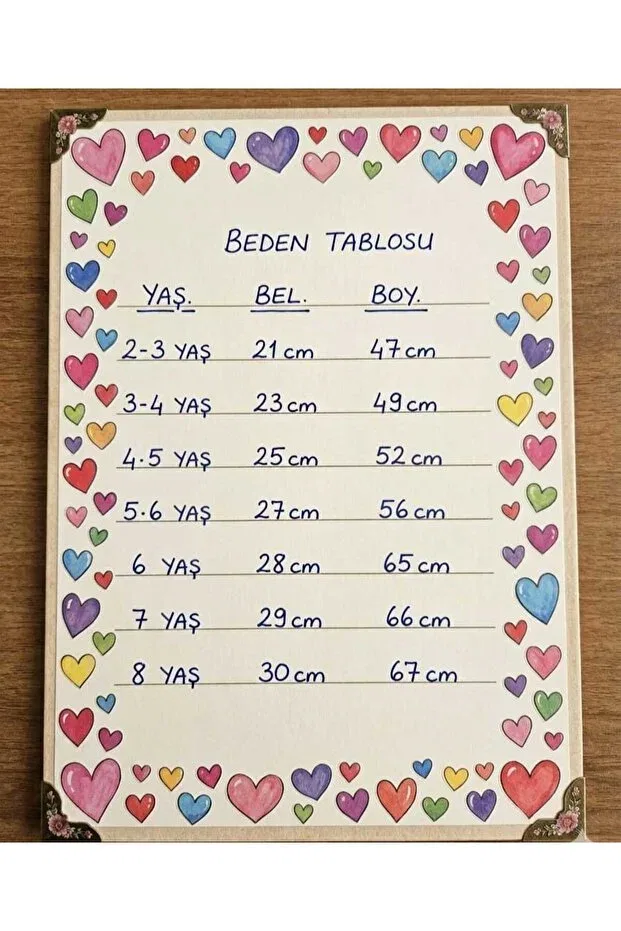 BEDEN TABLOSU
YAŞ. BEL. BOY.
2-3 YAŞ 21 cm 47 cm
3-4 YAŞ 23 cm 49 cm
4.5 YAŞ 25 cm 52 cm
5.6 YAŞ 27 cm 56 cm
6 YAŞ 28 cm 65 cm
7 YAŞ 29 cm 66 cm
8 YAŞ 30 cm 67 cm